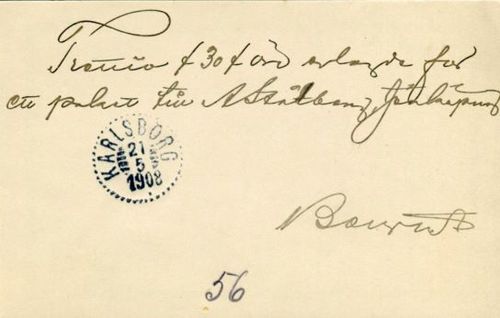 Trettio /:30:/ öre erlagde för
ett paket till A Ståhlberg, Jönköping
KARLSBORG
21
5
1908
56